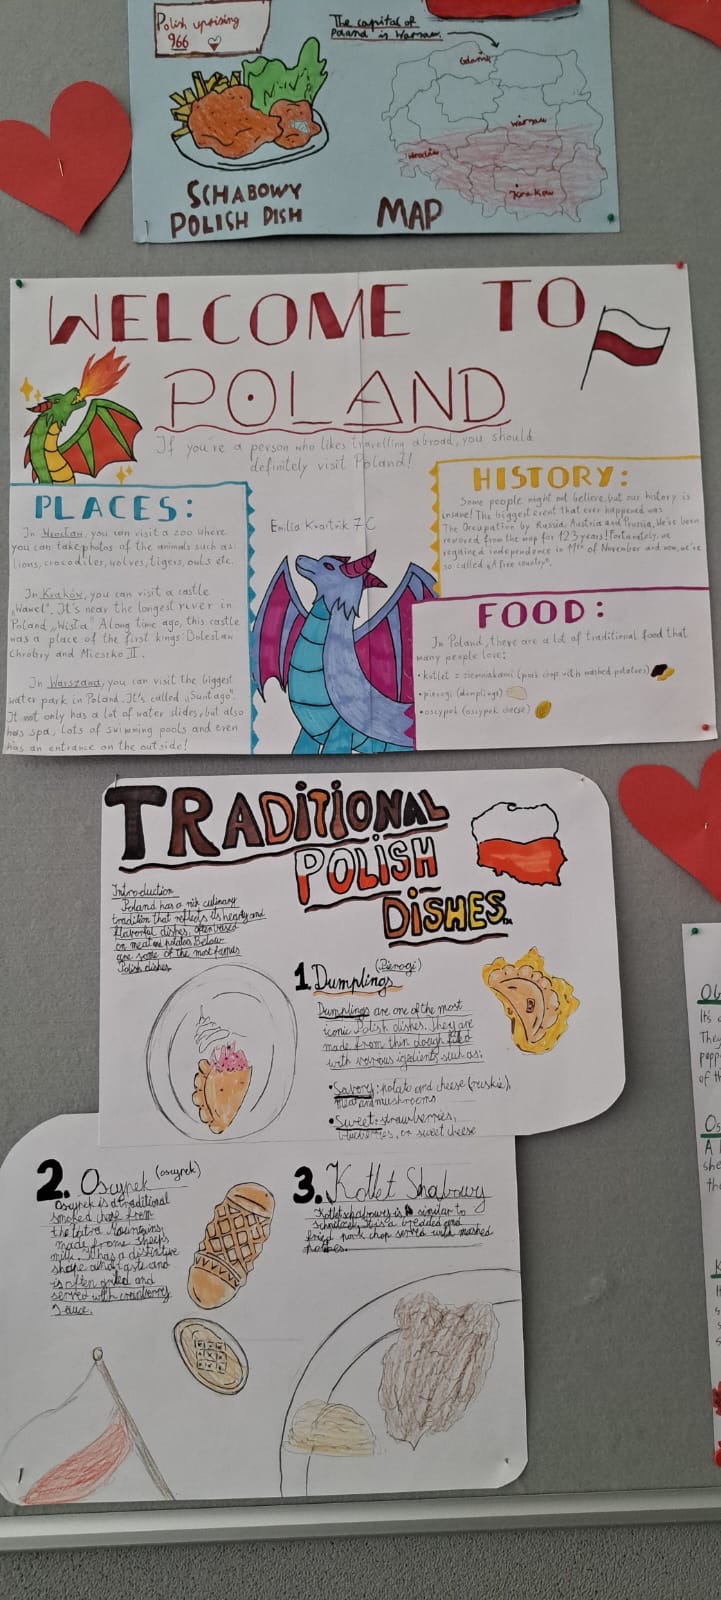 Polish uprising
966
The capital of
Poland is Warsaw.
Gdańsk
Warsaw
Wrocław
Kraków
SCHABOWY
POLISH DISH
MAP
WELCOME TO
POLAND
If you're a person who likes travelling abroad, you should
definitely visit Poland!
PLACES:
In Wrocław, you can visit a zoo where
you can take photos of the animals such as:
lions, crocodiles, wolves, tigers, owls etc.
In Kraków, you can visit a castle
„Wawel". It's near the longest river in
Poland „Wisła". Along time ago, this castle
was a place of the first kings: Bolesław
Chrobry and Mieszko II.
In Warszawa, you can visit the biggest
water park in Poland. It's called „Suntago".
It not only has a lot of water slides, but also
has spa, lots of swimming pools and even
has an entrance on the outside!
Emilia 7C
HISTORY:
Some people might not believe, but our history is
insane! The biggest event that ever happened was
The Occupation by Russia, Austria and Prussia. We've been
removed from the map for 123 years! Fortunately, we
regained independence in 11th of November and now, we're
so called „A free country".
FOOD:
In Poland, there are a lot of traditional food that
many people love:
• kotlet z ziemniakami (pork chop with mashed potatoes)
• pierogi (dumplings)
• oscypek (oscypek cheese)
TRADITIONAL
POLISH
DISHES
Introduction
Poland has a rich culinary
tradition that reflects its hearty and
flavorful dishes, often based
on meat and potatoes. Below
are some of the most famous
Polish dishes
1. Dumplings (Pierogi)
Dumplings are one of the most
iconic Polish dishes. They are
made from thin dough filled
with various igredients, such as:
• Savory: potato and cheese (ruskie),
meat and mushrooms
• Sweet: strawberries,
blueberries, or sweet cheese
2. Oscypek (oscypek)
Oscypek is a traditional
smoked chese from
the Tatra Mountains,
made from sheep's
milk. It has a distinctive
shape and taste and
is often grilled and
served with cranberry
sauce.
3. Kotlet Shabowy
Kotlet schabowy is similar to
schnitzel. It is a breaded and
fried pork chop served with mashed
potatoes.
It's
They
of th
Os
A
she
tha